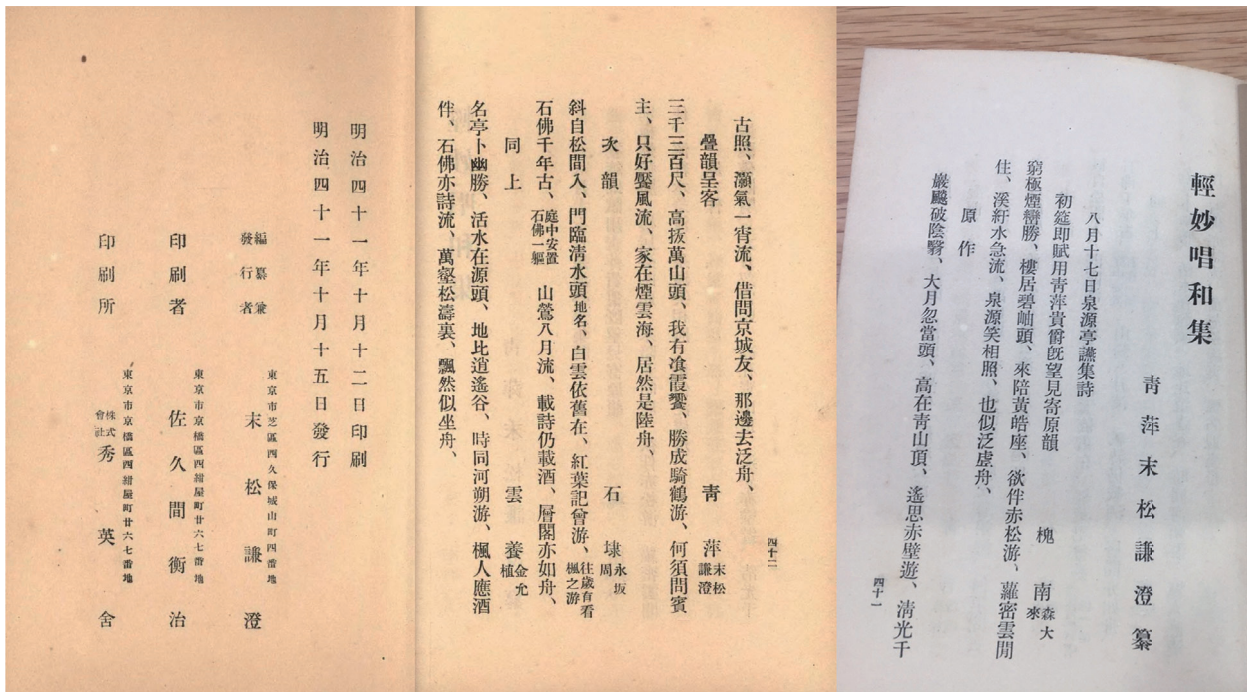 輕妙唱和集
靑萍末松謙澄纂
八月十七日泉源亭讌集詩
初筵即賦用靑萍貴爵旣望見寄原韻　槐南森大來
窮極煙巒勝、樓居碧岫頭、來陪黃皓座、欲伴赤松游、蘿密雲閒
住、溪紆水急流、泉源笑相照、也似泛虛舟、
原作
巖飈破陰翳、大月忽當頭、高在靑山頂、遙思赤壁遊、淸光千
四十一
古照、灝氣一宵流、借問京城友、那邊去泛舟、
疊韻呈客　靑萍末松謙澄
三千三百尺、高拔萬山頭、我有飡霞饗、勝成騎鶴游、何須問賓
主、只好饜風流、家在煙雲海、居然是陸舟、
次韻　石埭永坂周
斜自松間入、門臨淸水頭地名、白雲依舊在、紅葉記曾游、往歲有看楓之游
石佛千年古、庭中安置石佛一軀　山鶯八月流、載詩仍載酒、層閣亦如舟、
同上　雲養金允植
名亭卜幽勝、活水在源頭、地比逍遙谷、時同河朔游、楓人應酒
伴、石佛亦詩流、萬壑松濤裏、飄然似坐舟、
四十二
明治四十一年十月十二日印刷
明治四十一年十月十五日發行
東京市芝區西久保城山町四番地
編纂兼發行者　末松謙澄
東京市京橋區西紺屋町廿六七番地
印刷者　佐久間衡治
東京市京橋區西紺屋町廿六七番地
印刷所　株式會社秀英舍